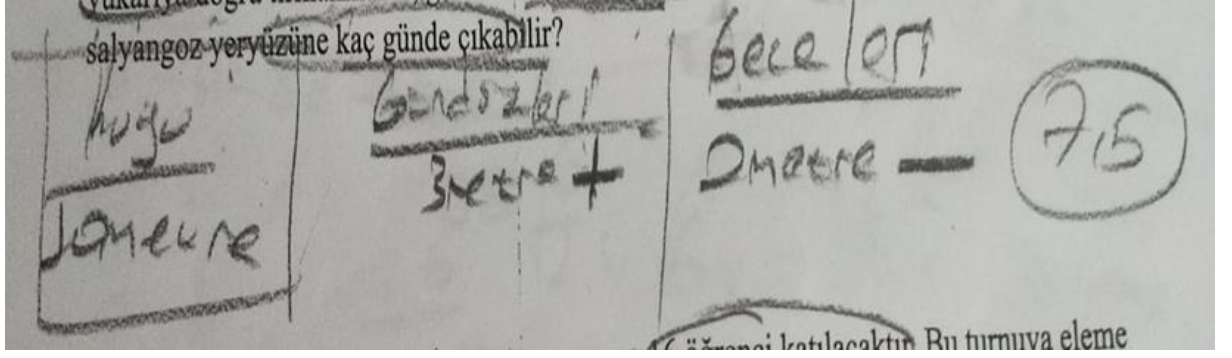 yukarıya doğru
salyangoz yeryüzüne kaç günde çıkabilir?
kuyu
10metre
Gündüzleri
3metre +
Geceleri
2metre —
7,5
öğrenci katılacaktır. Bu turnuva eleme